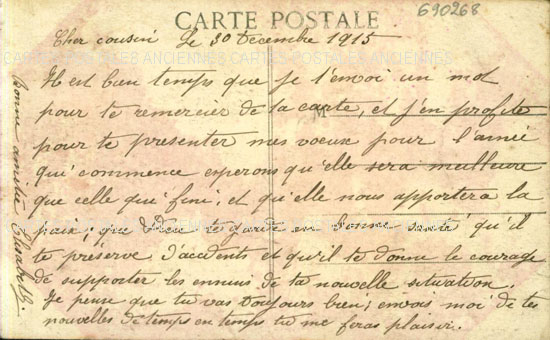 CARTE POSTALE
690268
Cher cousin Le 30 Decembre 1915
Il est bien temps que je t'envoi un mot
pour te remercier de ta carte, et j'en profite
pour te presenter mes voeux pour l'année
qui commence esperons qu'elle sera meilleure
que celle qui fini, et qu'elle nous apportera la
paix; que Dieu te garde en bonne santé qu'il
te préserve d'accidents et qu'il te donne le courage
de supporter les ennuis de ta nouvelle situation.
Je pense que tu vas toujours bien; envois moi de tes
nouvelles de temps en temps tu me feras plaisir.
Bonne amitié Elisabeth
CARTES POSTALES ANCIENNES